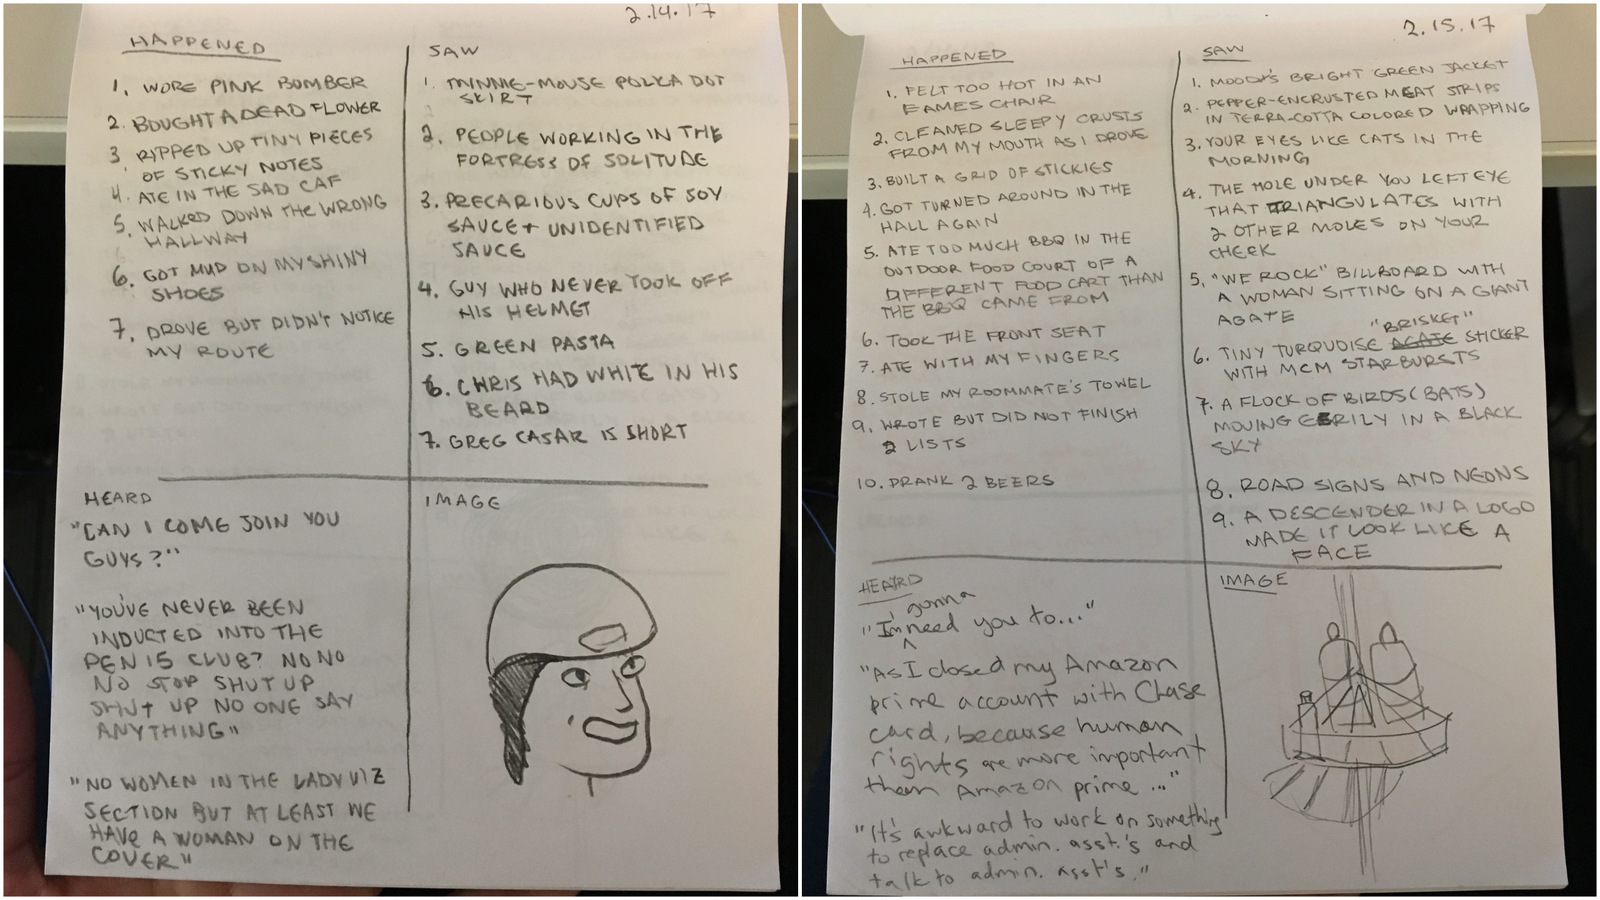 2.14.17
HAPPENED
1. WORE PINK BOMBER
2. BOUGHT A DEAD FLOWER
3 RIPPED UP TINY PIECES
OF STICKY NOTES
4. ATE IN THE SAD CAF
5. WALKED DOWN THE WRONG
HALLWAY
6. GOT MUD ON MY SHINY
SHOES
7. DROVE BUT DIDN'T NOTICE
MY ROUTE
SAW
1. MINNIE-MOUSE POLKA DOT
SKIRT
2. PEOPLE WORKING IN THE
FORTRESS OF SOLITUDE
3. PRECARIOUS CUPS OF SOY
SAUCE + UNIDENTIFIED
SAUCE
4. GUY WHO NEVER TOOK OFF
HIS HELMET
5. GREEN PASTA
6. CHRIS HAD WHITE IN HIS
BEARD
7. GREG CASAR IS SHORT
HEARD
"CAN I COME JOIN YOU
GUYS?"
"YOU'VE NEVER BEEN
INDUCTED INTO THE
PEN 15 CLUB? NO NO
NO STOP SHUT UP
SHUT UP NO ONE SAY
ANYTHING"
"NO WOMEN IN THE LADY VIZ
SECTION BUT AT LEAST WE
HAVE A WOMAN ON THE
COVER"
IMAGE
2.15.17
HAPPENED
1. FELT TOO HOT IN AN
EAMES CHAIR
2. CLEANED SLEEPY CRUSTS
FROM MY MOUTH AS I DROVE
3. BUILT A GRID OF STICKIES
4. GOT TURNED AROUND IN THE
HALL AGAIN
5. ATE TOO MUCH BBQ IN THE
OUTDOOR FOOD COURT OF A
DIFFERENT FOOD CART THAN
THE BBQ CAME FROM
6. TOOK THE FRONT SEAT
7. ATE WITH MY FINGERS
8. STOLE MY ROOMMATE'S TOWEL
9. WROTE BUT DID NOT FINISH
2 LISTS
10. DRANK 2 BEERS
SAW
1. MOODY'S BRIGHT GREEN JACKET
2. PEPPER-ENCRUSTED MEAT STRIPS
IN TERRA-COTTA COLORED WRAPPING
3. YOUR EYES LIKE CATS IN THE
MORNING
4. THE MOLE UNDER YOU LEFT EYE
THAT TRIANGULATES WITH
2 OTHER MOLES ON YOUR
CHEEK
5. "WE ROCK" BILLBOARD WITH
A WOMAN SITTING ON A GIANT
AGATE
"BRISKET"
6. TINY TURQUOISE AGATE STICKER
WITH MCM STARBURSTS
7. A FLOCK OF BIRDS (BATS)
MOVING EERILY IN A BLACK
SKY
8. ROAD SIGNS AND NEONS
9. A DESCENDER IN A LOGO
MADE IT LOOK LIKE A
FACE
HEARD
gonna
"I'm need you to..."
"As I closed my Amazon
prime account with Chase
card, because human
rights are more important
then Amazon prime..."
"It's awkward to work on something
to replace admin. asst.'s and
talk to admin. asst's."
IMAGE